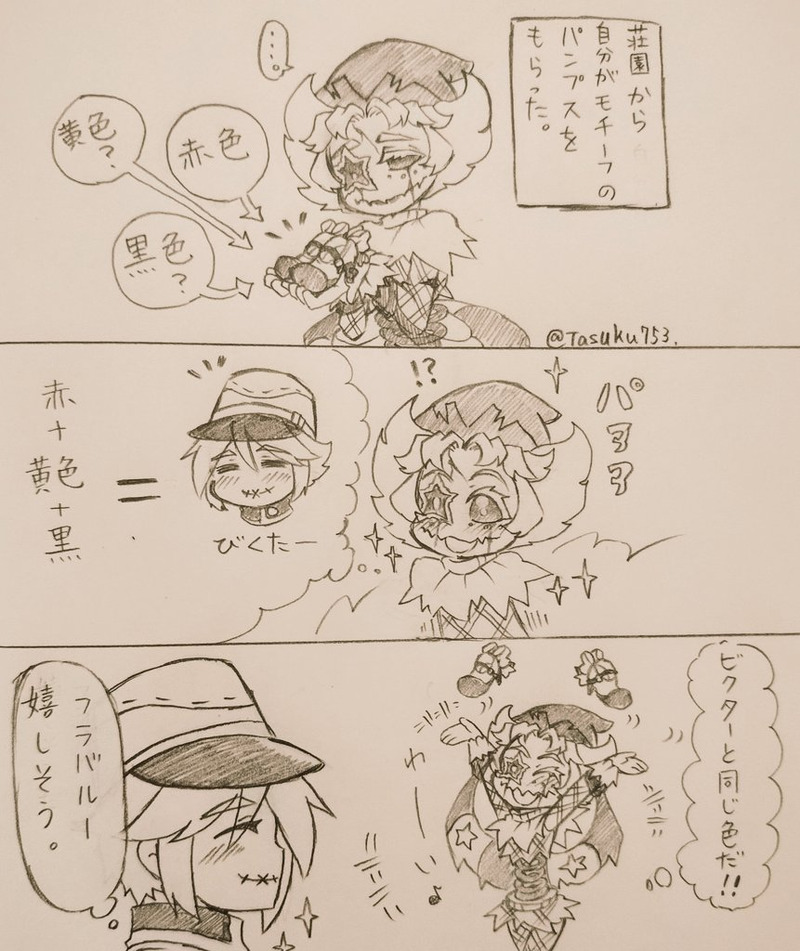 荘園から
自分がモチーフの
パンプスを
もらった。
…。
赤色
黄色?
黒色?
@Tasuku753.
パァァ
!?
びくたー
赤+黄色+黒
=
ビクターと同じ色だ!!
わーい♪
フラバルー
嬉しそう。